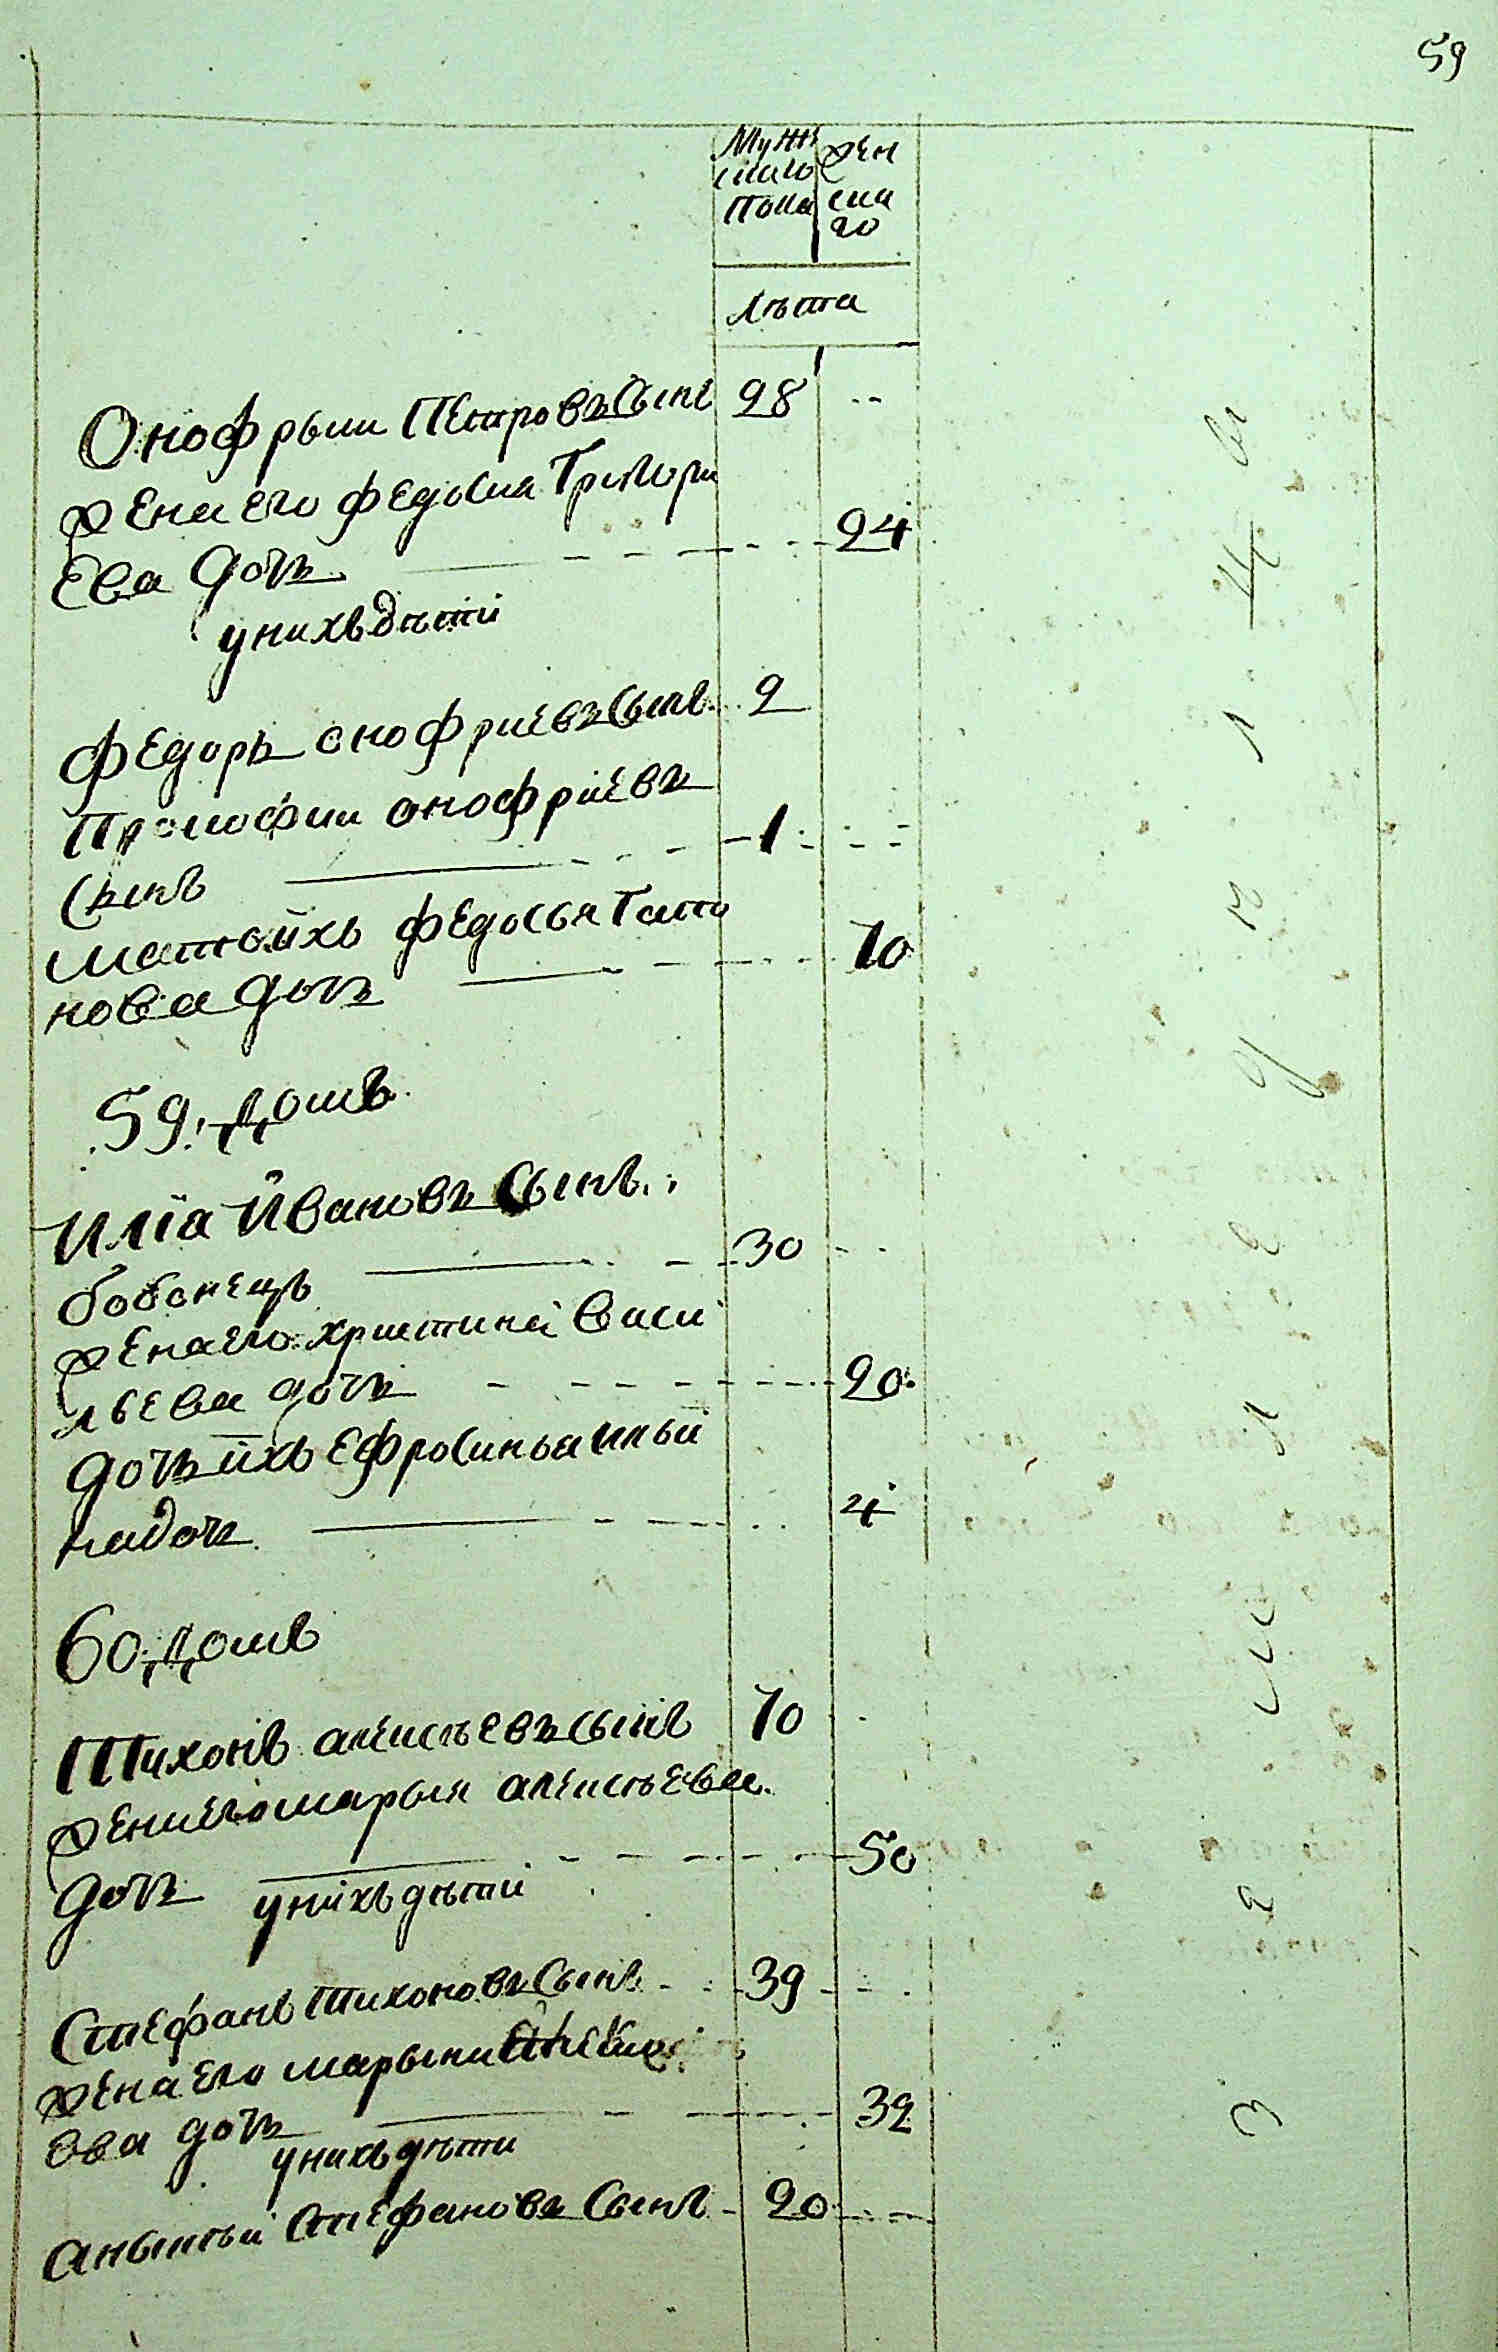 59
Мужескаго пола
Женскаго
Лѣта
Онофрыи Петровъ Сынъ 28
Жена его Федосия Григори
Ева дочь 24
у нихъ дѣти
Федоръ онофриевъ Сынъ 2
Прокофии онофриевъ
Сынъ 1
мать ихъ Федосья
нова дочь 70
59. Домъ
Илïа Ивановъ Сынъ
30
Жена его христина Васи
льева дочь 20
дочь ихъ Ефросинья Ильи
на дочь 4
60. Домъ
Тихонъ алексѣевъ сынъ 70
Жена его марья алексѣева
дочь 50
у нихъ дѣти
Стефанъ Тихоновъ Сынъ 39
Жена его марыни
ова дочь 32
у нихъ дѣти
Стефановъ Сынъ 20